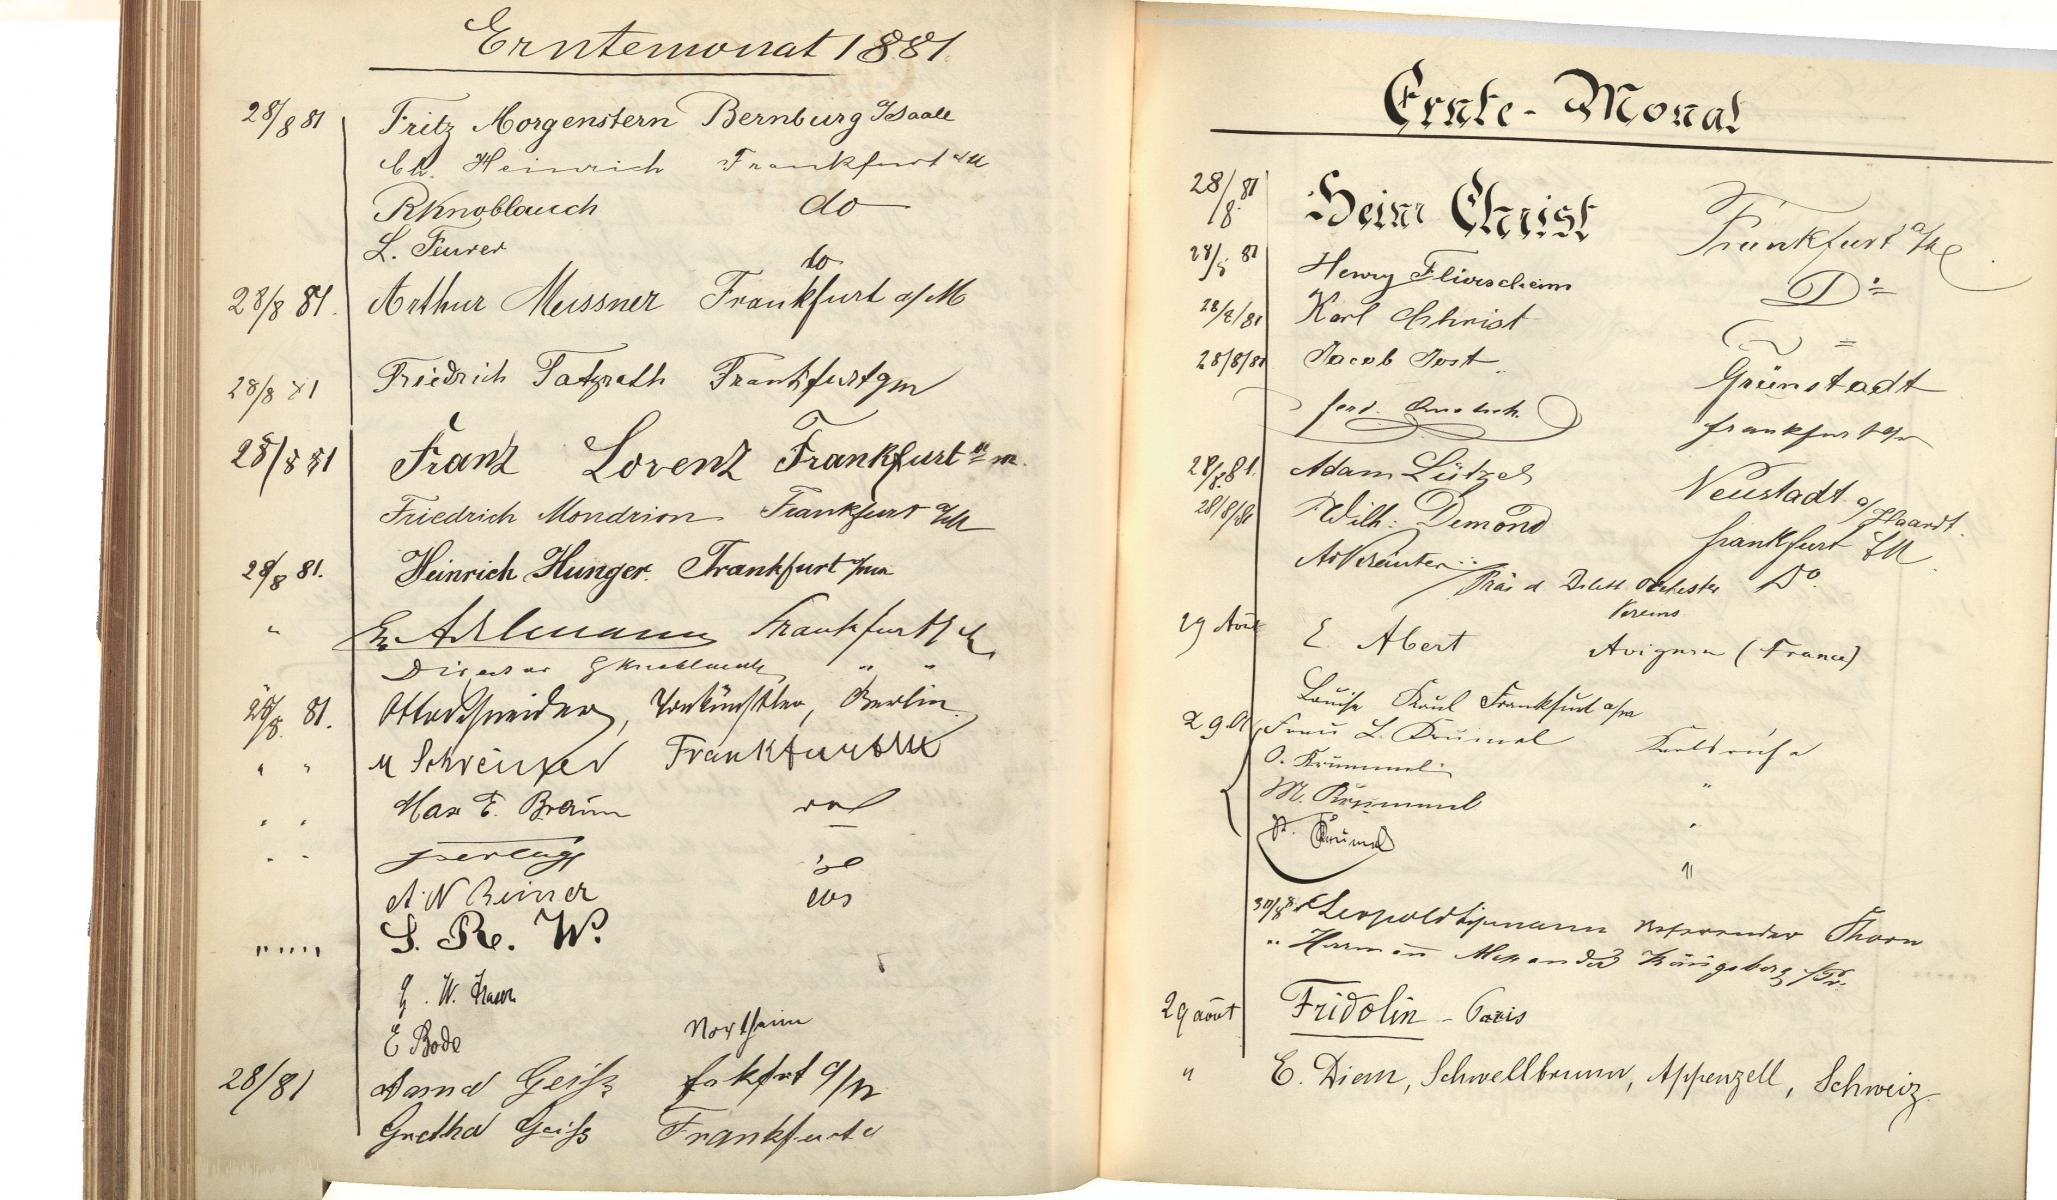 Erntemonat 1881.
28/8 81 Fritz Morgenstern Bernburg a/Saale
Ch. Heinrich Frankfurt a/M
R Knoblauch do
L. Feurer do
28/8 81. Arthur Meissner Frankfurt a/M
28/8 81 Friedrich Frankfurt a/M
28/8 81 Franz Lorenz Frankfurt a/M.
Friedrich Mondrion Frankfurt a/M
28/8 81. Heinrich Hunger. Frankfurt a/M
" Frankfurt a/M
" "
28/8. 81. Otto Schneider, Tonkünstler, Berlin.
" " M Frankfurt a/M
" " Max E. Braun
" "
A. W
" " " " S. Re. W.
W.
E Bode Northeim
28/81 Anna Geiß Frkfrt a/M
Gretha Geiß Frankfurt a
Ernte-Monat
28/8. 81 Heinr Christ Frankfurt a/M
28/8 81 Henry Flörsheim Do
28/8/81 Karl Christ " =
28/8/81 Jacob Jost. Grünstadt
Ferd. Frankfurt a/M
28/8. 81. Adam Lützel Neustadt a/Haardt.
28/8/81 Wilh: Demond Frankfurt a/M
Präs d Dilett Orchester Do.
Vereins
29 Août E. Abert Avignon (France)
Louise Frankfurt a/M
29 Frau L. Krümmel Karlsruhe
O. Krümmel "
M. Krümmel "
Krümel "
30/8 81 Leopold Referendar Thorn
" Hermann Alexander Königsberg i/Pr.
29 août Fridolin - Paris
" E. Diem, Schwellbrunn, Appenzell, Schweiz.